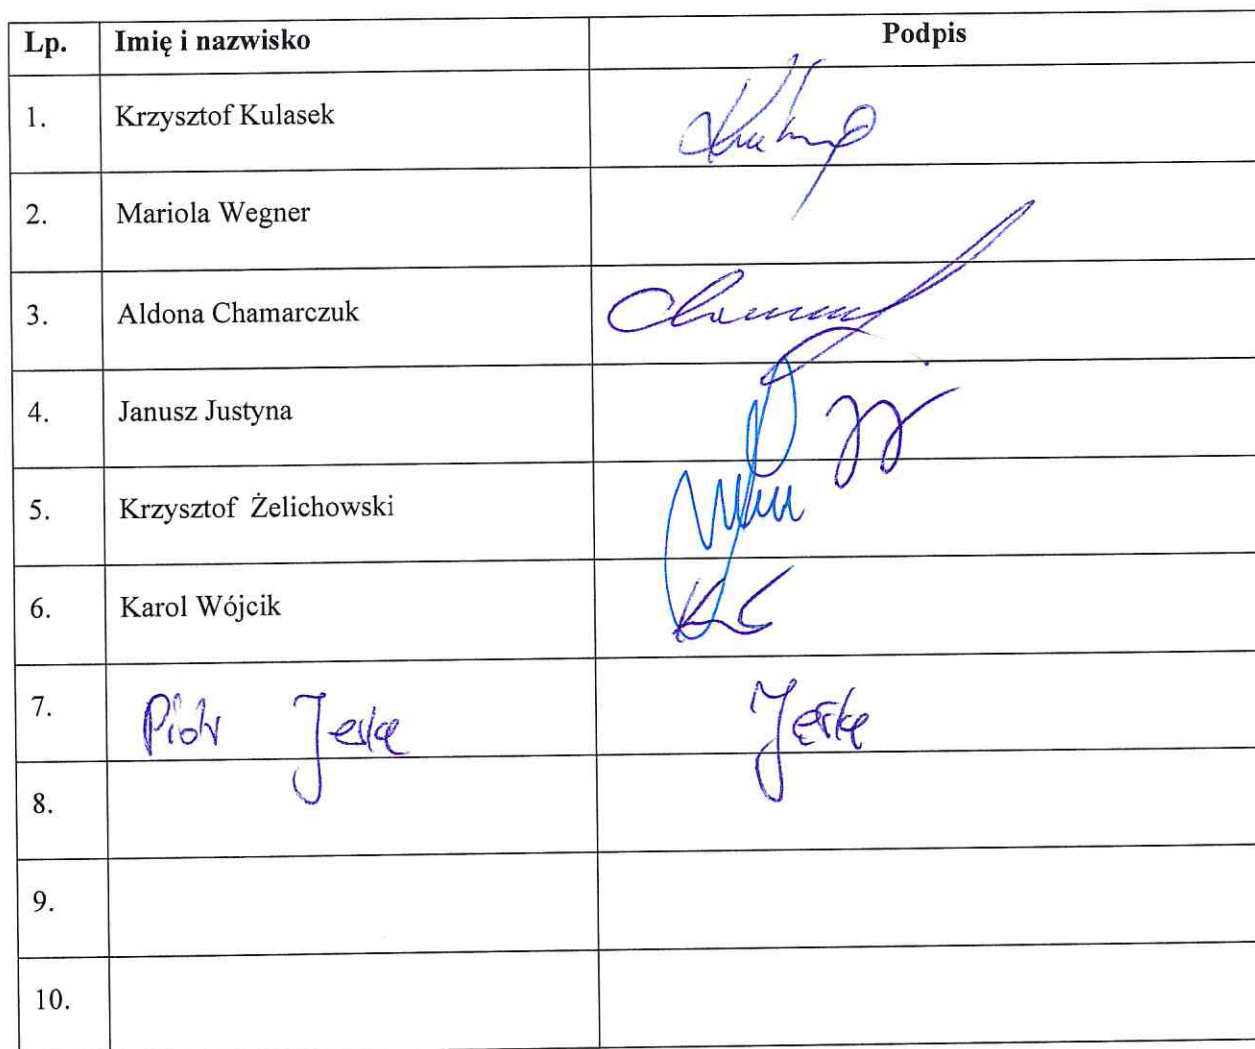 Lp. Imię i nazwisko Podpis
1. Krzysztof Kulasek
2. Mariola Wegner
3. Aldona Chamarczuk
4. Janusz Justyna
5. Krzysztof Żelichowski
6. Karol Wójcik
7. Piotr
8.
9.
10.